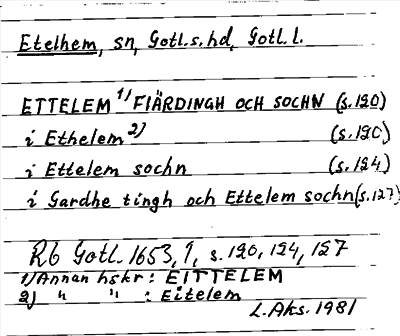 Etelhem, sn, Gotl.s.hd, Gotl.l.
ETTELEM 1) FIÄRDINGH OCH SOCHN (s.120)
i Ethelem 2) (s.120)
i Ettelem sochn (s.124)
i Gardhe tingh och Ettelem sochn (s.127)
Rb Gotl. 1653, 1, s. 120, 124, 127
1) Annan hskr: EITTELEM
2) " " : Eitelem
L. Aks. 1981